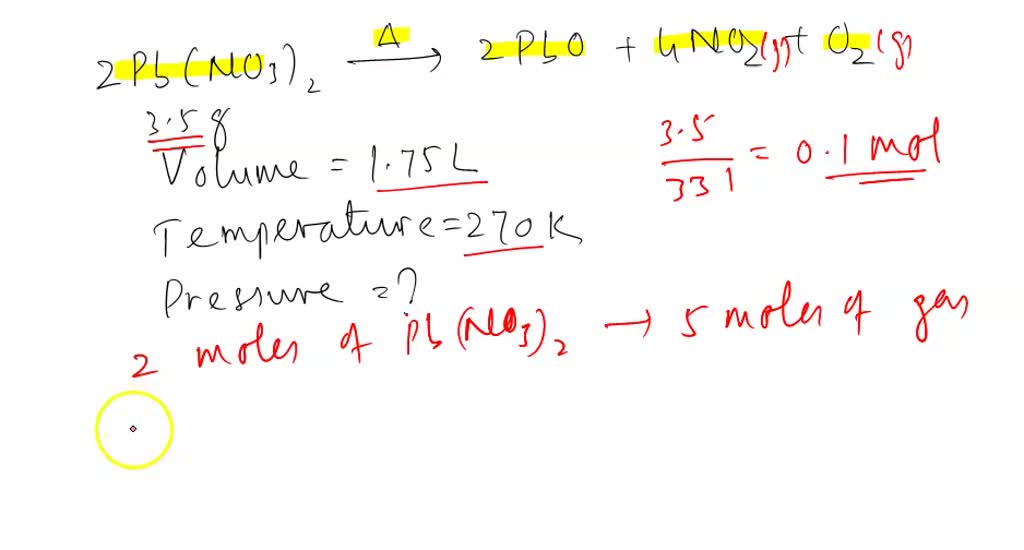 2Pb(NO3)2 Δ→ 2PbO + 4NO2(g) + O2(g)
3.5 g
3.5/331 = 0.1 mol
Volume = 1.75L
Temperature = 270 K
Pressure = ?
2 moles of Pb(NO3)2 → 5 moles of gas